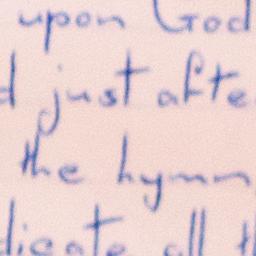 upon God
just afte
the hymn
dicate all t